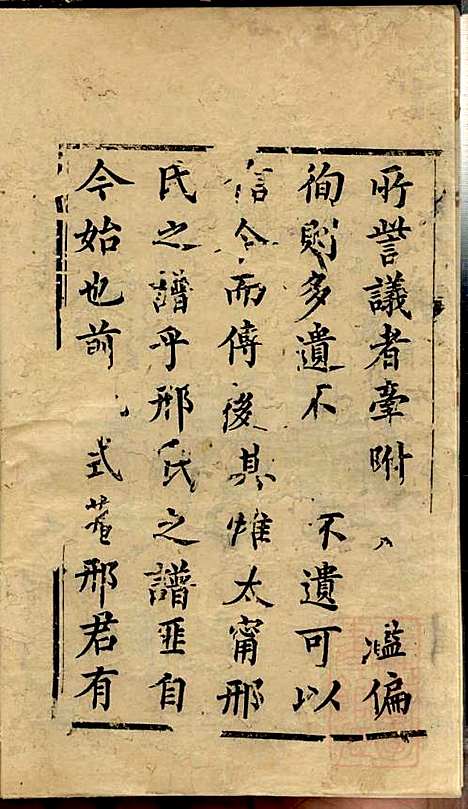 所訾議者牽附 濫偏
徇則多遺不 不遺可以
信今而傳後其惟太甯邢
氏之譜乎邢氏之譜匪自
今始也前 式菴邢君有